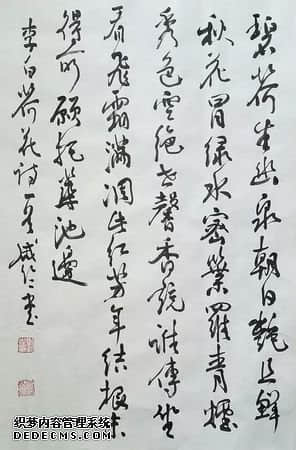 碧荷生幽泉朝日艷且鮮
秋花冒绿水密葉羅青煙
秀色空絶世馨香竟誰傳坐
看飛霜滿凋此红芳年结根未
得所願托華池邊
李白荷花诗一首 书
织梦内容管理系统
DEDECMS.COM